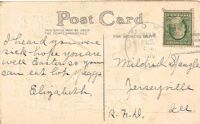 Post Card
I heard you were
sick. hope you are
well Easter so you
can eat lots of eggs
Elizabeth
Mildred
Jerseyville
Ill
R.F.D.